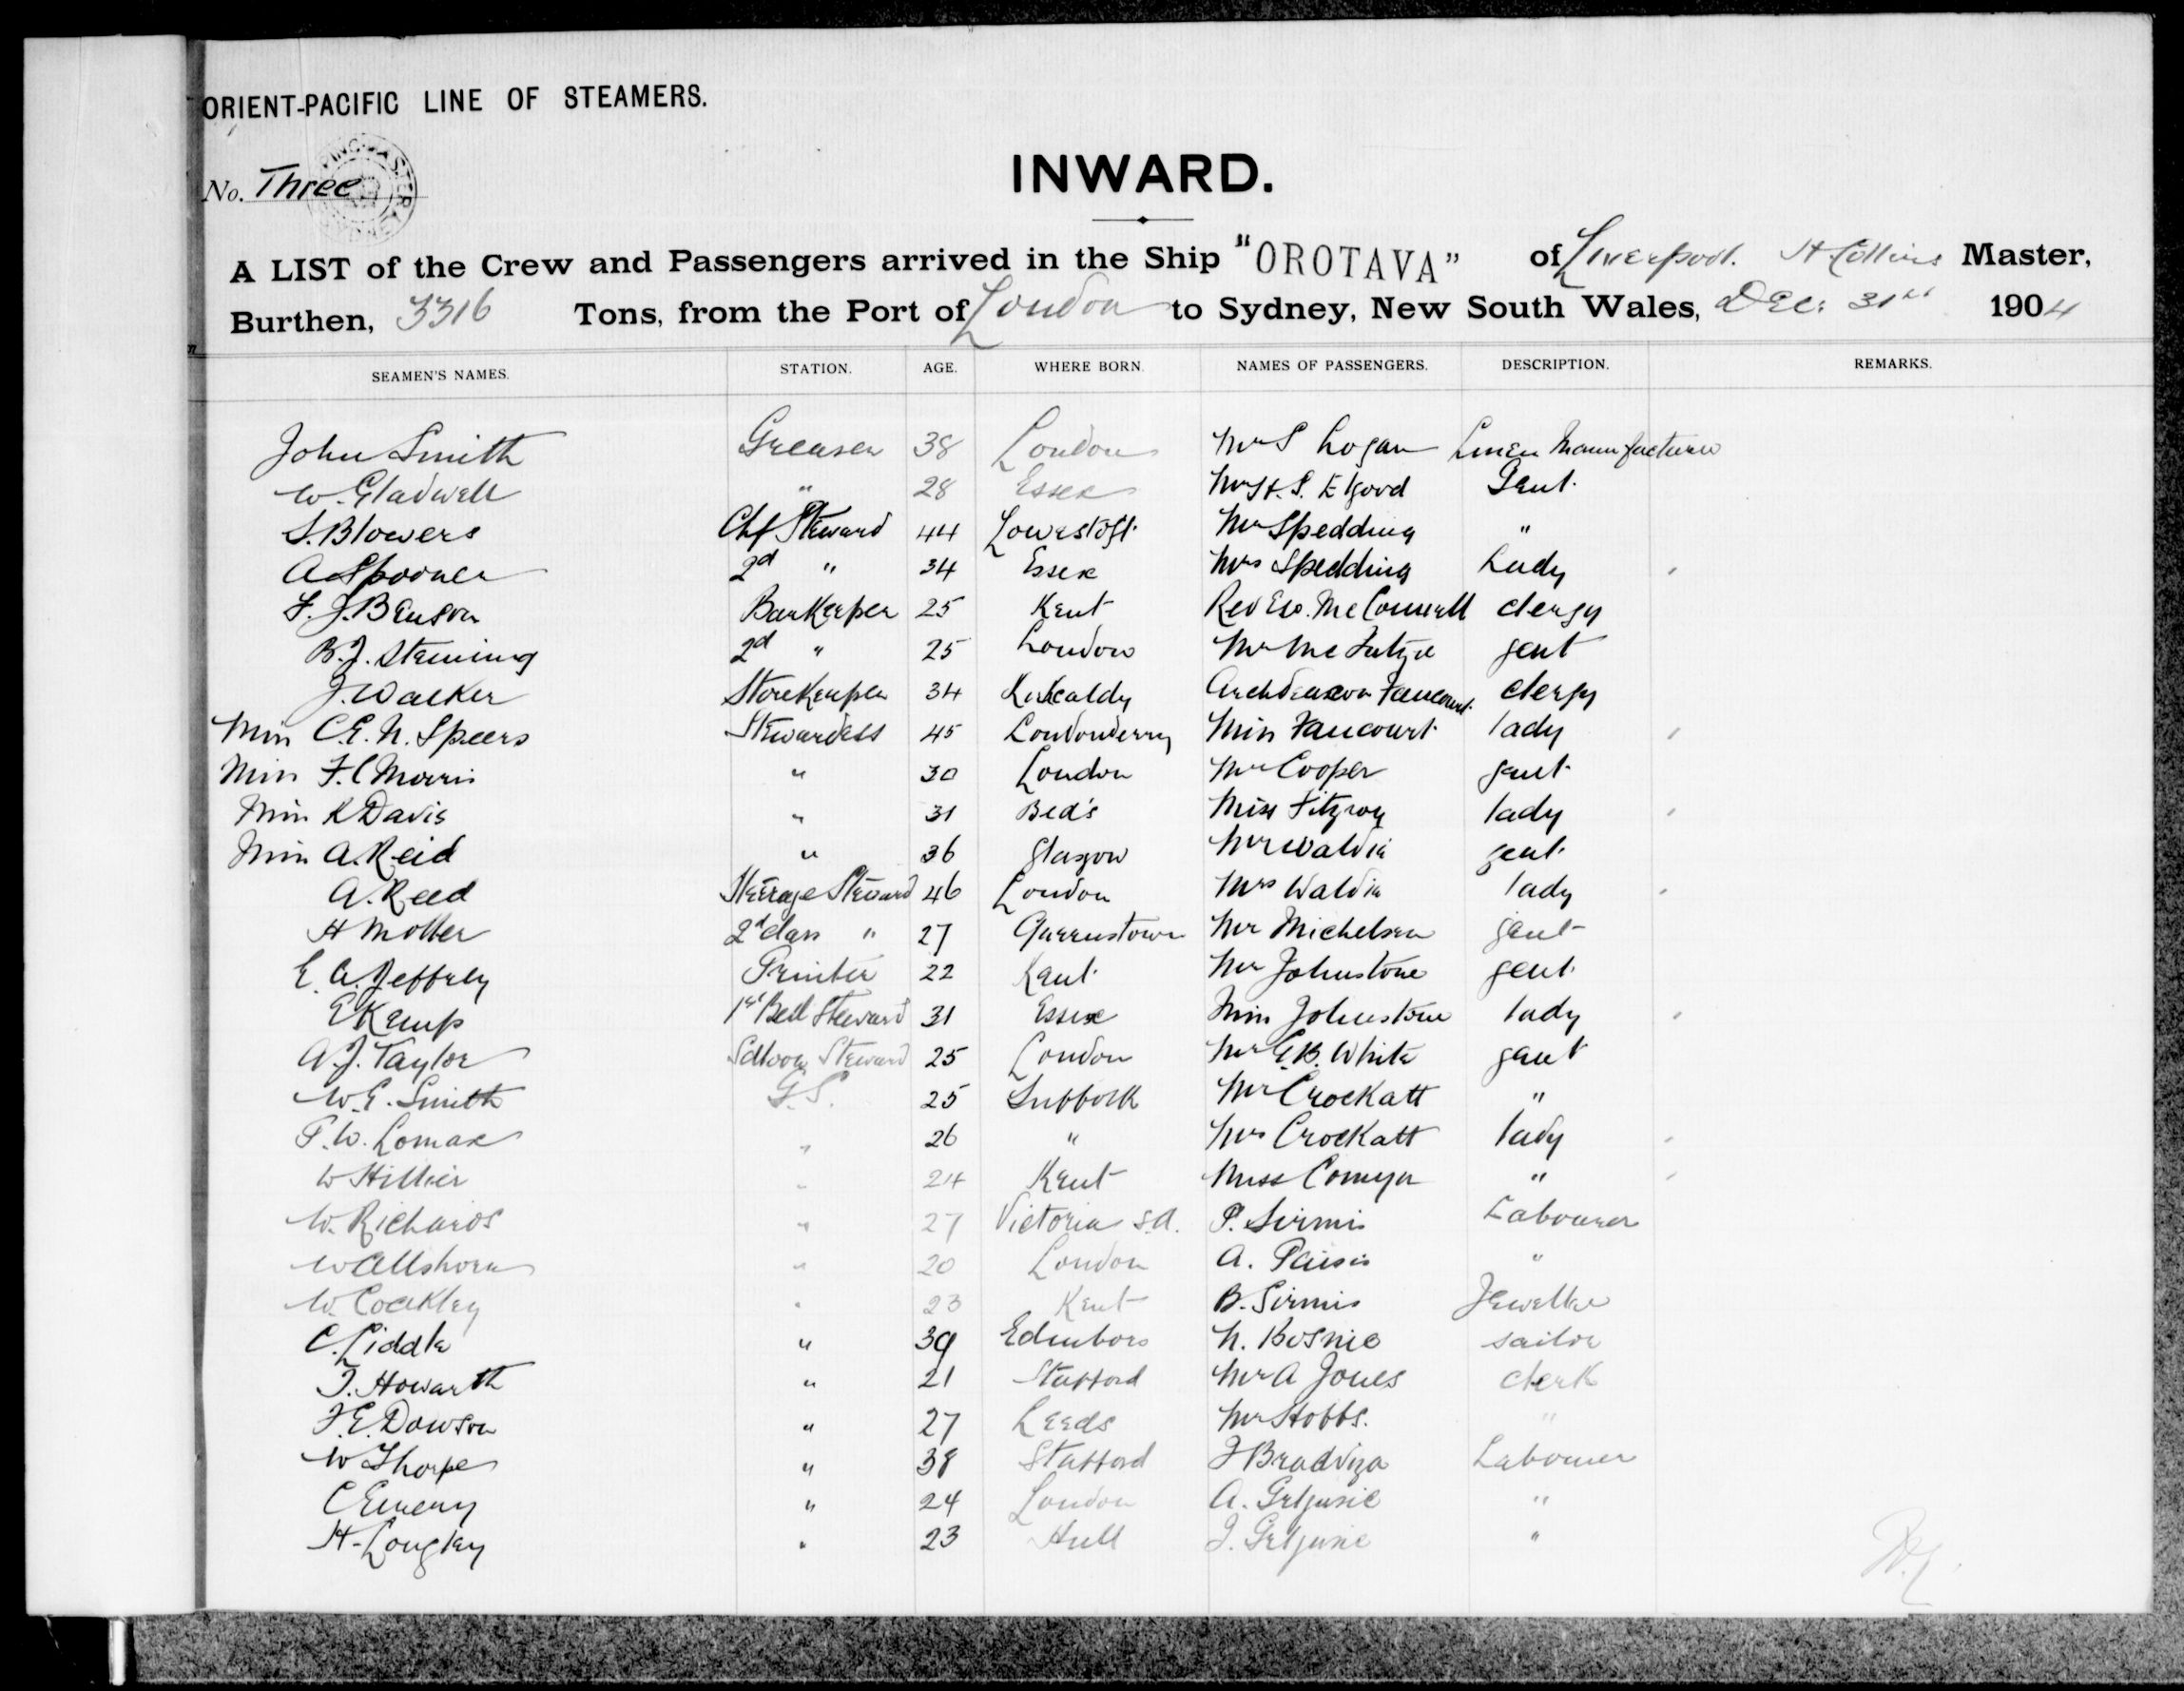 ORIENT-PACIFIC LINE OF STEAMERS.
No. Three
INWARD.
A LIST of the Crew and Passengers arrived in the Ship "OROTAVA" of Liverpool. H Collins Master,
Burthen, 3316 Tons, from the Port of London to Sydney, New South Wales, Dec: 31st 1904
SEAMEN'S NAMES. STATION. AGE. WHERE BORN. NAMES OF PASSENGERS. DESCRIPTION. REMARKS.
John Smith Greaser 38 London Mr S Logan Linen Manufacturer
W. Gladwell " 28 Essex Mr H. S. Elgood Gent.
S. Blowers Chf Steward 44 Lowestoft Mr Spedding "
A Spooner 2d " 34 Essex Mrs Spedding Lady
F. J. Benson Barkeeper 25 Kent Rev Ew. McConnell clergy
B. J. Stenning 2d " 25 London Mr gent
J. Walker Storekeeper 34 Kirkcaldy Archdeacon Faucourt clergy
Miss C. E. N. Speers Stewardess 45 Londonderry Miss Faucourt lady
Miss F. C Morris " 30 London Mr Cooper gent
Miss K Davis " 31 Bed's Miss Fitzroy lady
Miss A. Reid " 36 Glasgow Mr Waldie gent.
A. Reed Steerage Steward 46 London Mrs Waldie lady
H 2d class " 27 Queenstown Mr Michelsen gent
E. A. Jeffrey Printer 22 Kent Mr Johnstone gent
E Kemp 1st Bed Steward 31 Essex Miss Johnstone lady
A. J. Taylor Saloon Steward 25 London Mr G. B. White gent
W. E. Smith G. S. 25 Suffolk Mr Crockatt "
P. W. Lomax " 26 " Mrs Crockatt lady
W Hillier " 24 Kent Miss Comyn "
W. Richards " 27 Victoria S.A. P. Sirmis Labourer
W Allshorn " 20 London A. "
W. Coakley " 23 Kent B. Sirmis Jeweller
C. Liddle " 39 Edinboro N. Bosnic sailor
T. Howarth " 21 Stafford Mr A Jones clerk
F. E. Dowson " 27 Leeds Mr Hobbs. "
W Thorpe " 38 Stafford J Bradviza Labourer
C Emeny " 24 London A. Grljusic "
H. Longley " 23 Hull J. Grljusic "